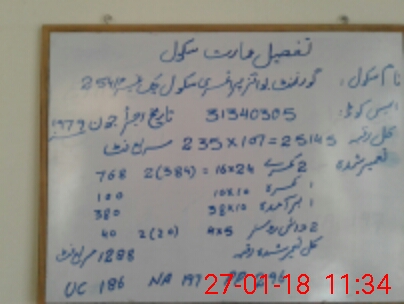 تفصیل عمارت سکول
نام سکول: گورنمنٹ بوائز پرائمری سکول چک نمبر
31340305 تاریخ اجرا جون 1979
کل رقبہ 235x107=25145 مربع فٹ
تعمیر شدہ 2 کمرے 16x24 = 2(384) 768
1 کمرہ 10x10 100
1 برآمدہ 38x10 380
2 واش روم 4x5 2(20) 40
کل تعمیر شدہ رقبہ 1288 مربع فٹ
UC 186 NA 197
27-01-18 11:34